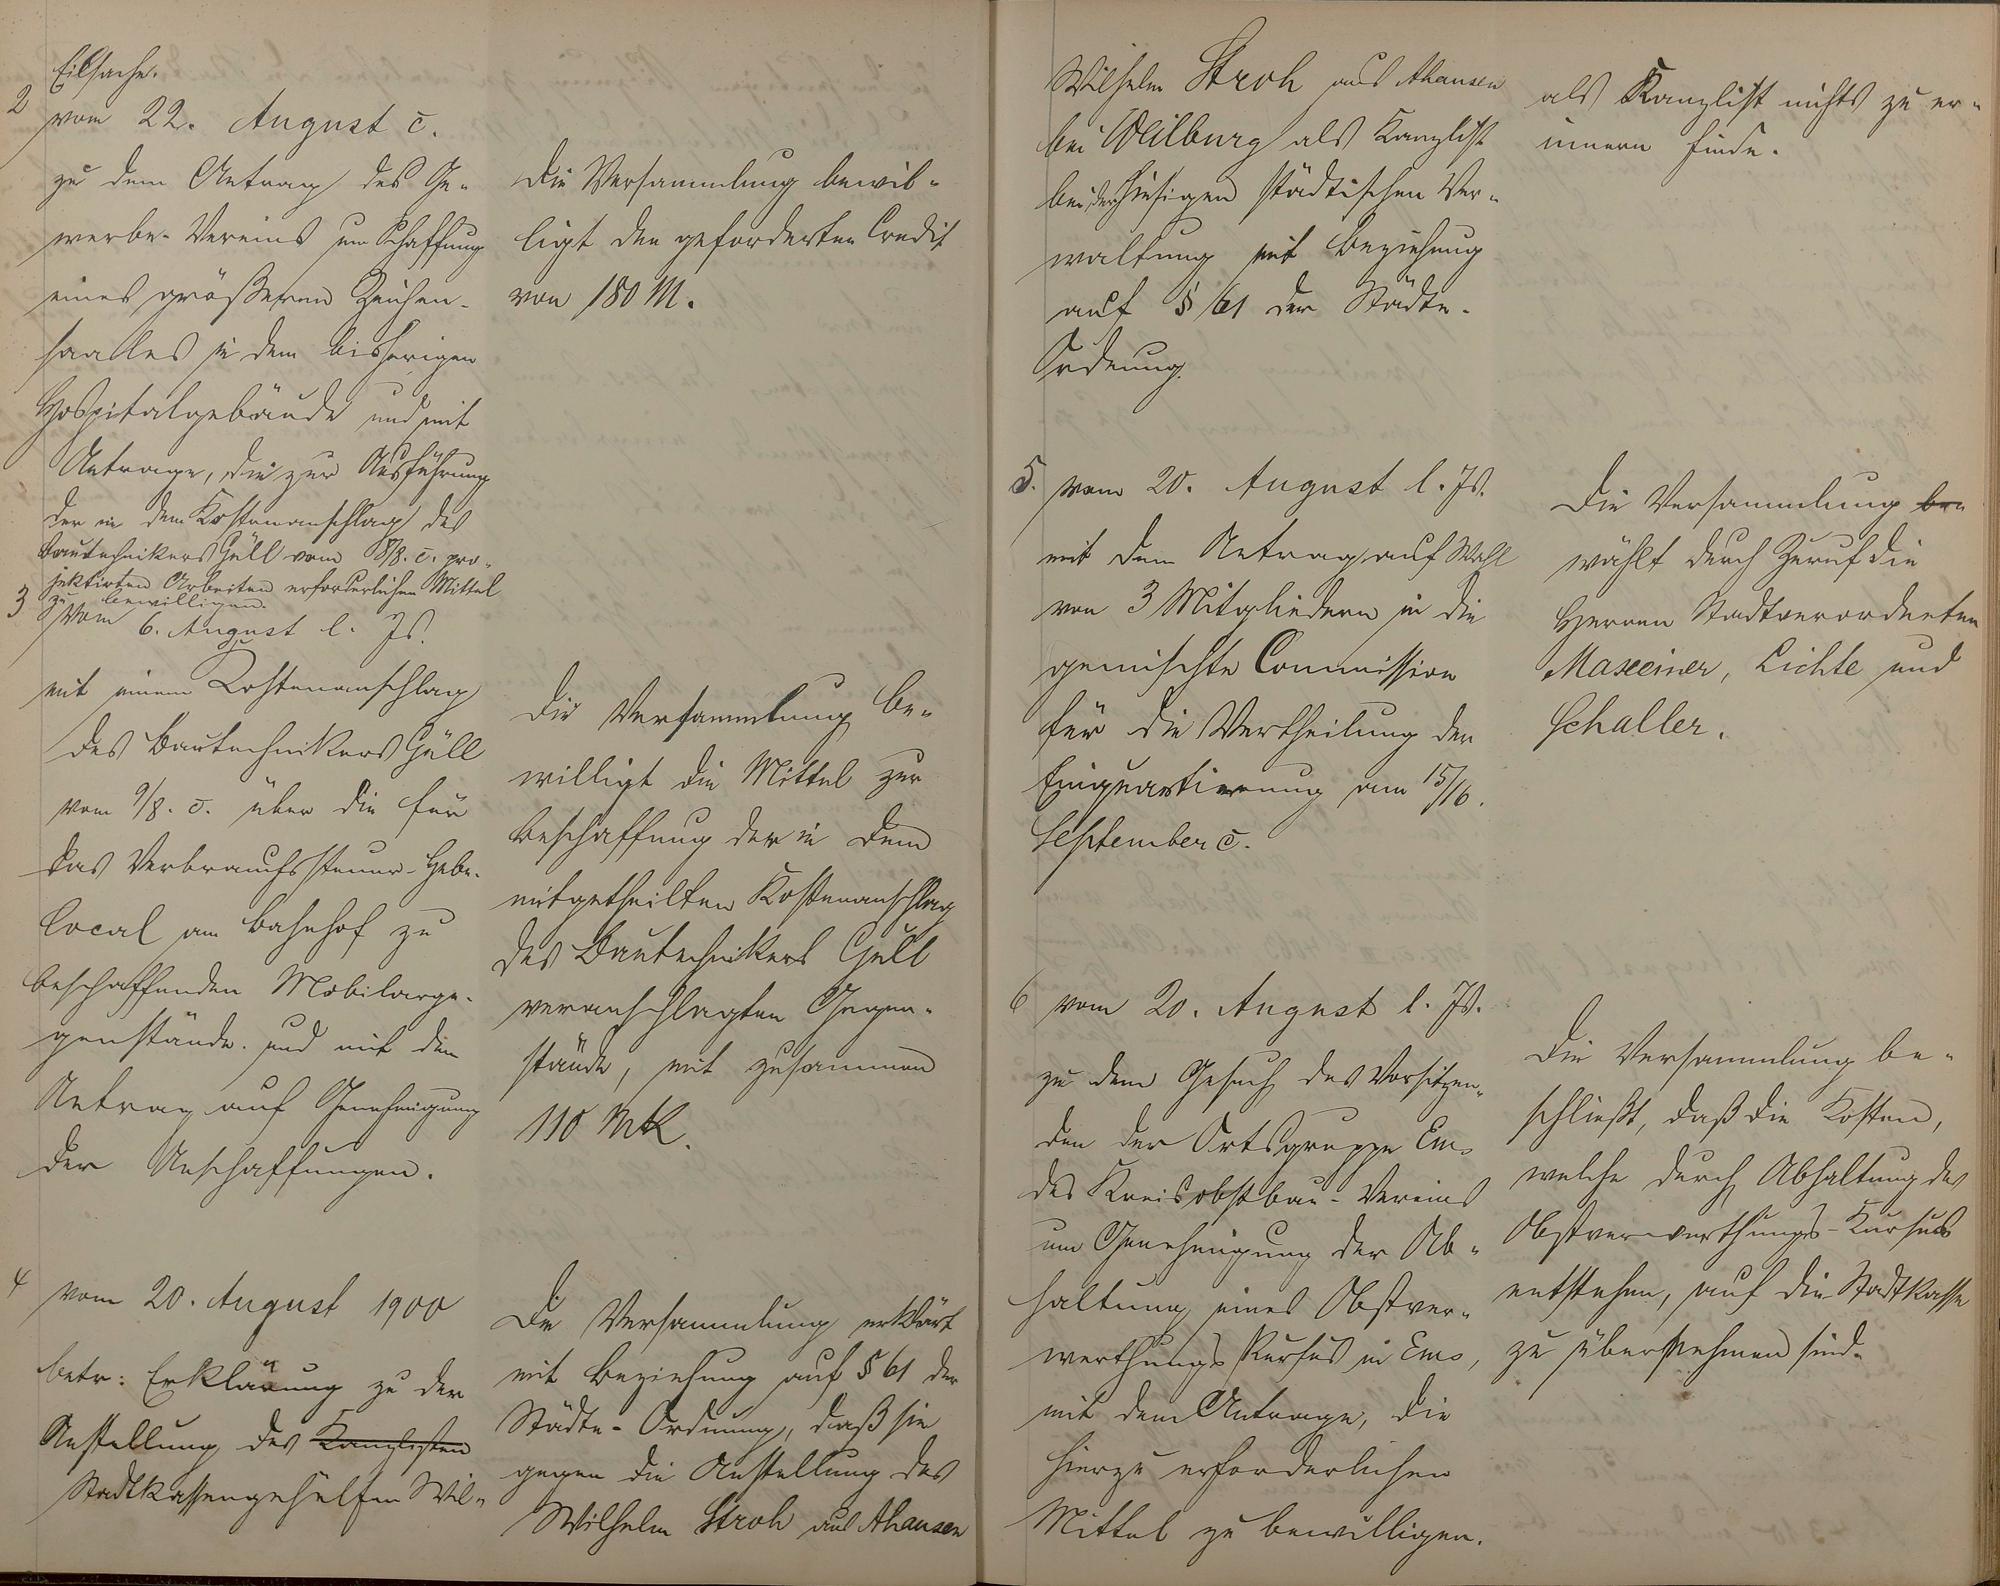 Eilsache.
2 vom 22. August c.
zu dem Antrag des Ge-
werbe-Vereins um Schaffung
eines größeren Zeichen-
saales in dem bisherigen
Hospitalgebäude und mit
Antrage, die zur Ausführung
der in dem Kostenanschlag des
Bautechnikers Güll vom 8/8. c. pro-
jektirten Arbeiten erforderlichen Mittel
zu bewilligen.
Die Versammlung bewil-
ligt den geforderten Credit
von 180 M.
3 Vom 6. August l. Js.
mit einem Kostenanschlag
des Bautechnikers Güll
vom 9/8. c. über die für
das Verbrauchssteuer-Hebe-
local am Bahnhof zu
beschaffenden Mobilarge-
genstände. und mit dem
Antrag auf Genehmigung
der Anschaffungen.
Die Versammlung be-
willigt die Mittel zur
Beschaffung der in dem
mitgetheilten Kostenanschlag
des Bautechnikers Güll
veranschlagten Gegen-
stände, mit zusammen
110 Mk.
4 vom 20. August 1900
betr: Erklärung zu der
Anstellung des Kanzlisten
Stadtkassengehülfen Wil-
Die Versammlung erklärt
mit Beziehung auf § 61 der
Städte-Ordnung, daß sie
gegen die Anstellung des
Wilhelm Stroh aus Ahausen
Wilhelm Stroh aus Ahausen
bei Weilburg als Kanzlist
bei der hiesigen städtischen Ver-
waltung mit Beziehung
auf § 61 der Städte-
Ordnung.
als Kanzlist nichts zu er-
innern finde.
5. vom 20. August l. Js.
mit dem Antrag auf Wahl
von 3 Mitgliedern in die
gemischte Commission
für die Vertheilung der
Einquartierung am 15/16.
September c.
Die Versammlung be-
wählt durch Zuruf die
Herren Stadtverordneten
Maxeiner, Lichte und
Schaller.
6 vom 20. August l. Js.
zu dem Gesuch des Vorsitzen-
den der Ortsgruppe Ems
des Kreisobstbau-Vereins
um Genehmigung der Ab-
haltung eines Obstver-
werthungs Kursus in Ems,
mit dem Antrage, die
hierzu erforderlichen
Mittel zu bewilligen.
Die Versammlung be-
schließt, daß die Kosten,
welche durch Abhaltung des
Obstverwerthungs-Kursus
entstehen, auf die Stadtkasse
zu übernehmen sind.